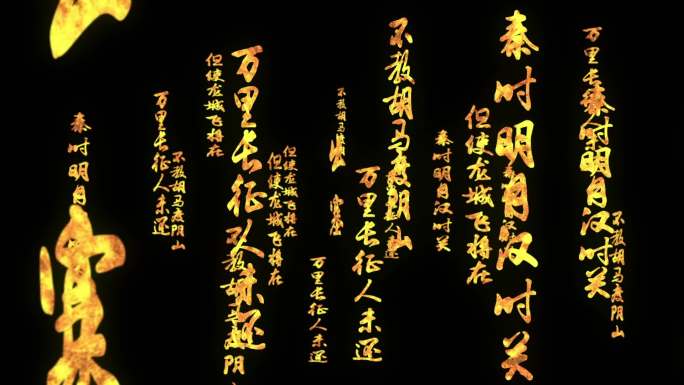 秦时明月汉时关
万里长征人未还
不教胡马度阴山
秦时明月汉时关
不教胡马度阴山
但使龙城飞将在
秦时明月汉时关
不教胡马度阴山
万里长征人未还
不教胡马
万里长征人未还
但使龙城飞将在
但使龙城飞将在
万里长征人未还
不教胡马度阴
但使龙城飞将在
不教胡马度阴山
万里长征人未还
秦时明月